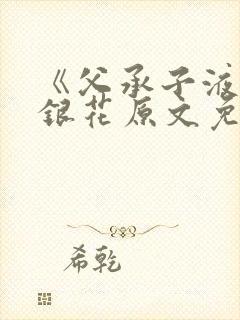 《父承子液
銀花原文免
希乾